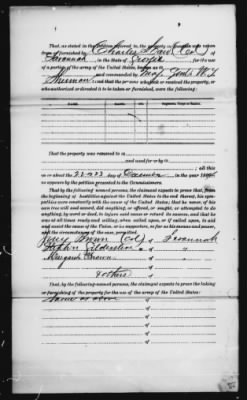 That, as stated in the petition referred to, the property in question was taken
from or furnished by Charles (Col)
of Savannah, in the State of Georgia for the use
of a portion of the army of the United States, known as
and commanded by Maj. Genl. W. T.
Sherman and that the persons who took or received the property, or
who authorized or directed it to be taken or furnished, were the following:
That the property was removed to
and used for or by
all this
on or about the 22 & 23 day of December in the year
as appears by the petition presented to the Commissioners.
That, by the following-named persons, the claimant expects to prove that, from
the beginning of hostilities against the United States to the end thereof, his sym-
pathies were constantly with the cause of the United States; that he never, of his
own free will and accord, did anything, or offered, or sought, or attempted to do
anything, by word or deed, to injure said cause or retard its success, and that he
was at all times ready and willing, when called upon, or if called upon, to aid
and assist the cause of the Union, or its supporters, so far as his means and power,
and the circumstances of the case, permitted.
Brown (Col) of Savannah
of "
Margaret of "
4 others of
of
That, by the following-named persons, the claimant expects to prove the taking
or furnishing of the property for the use of the army of the United States:
Same as above of
of
of
of
of
of